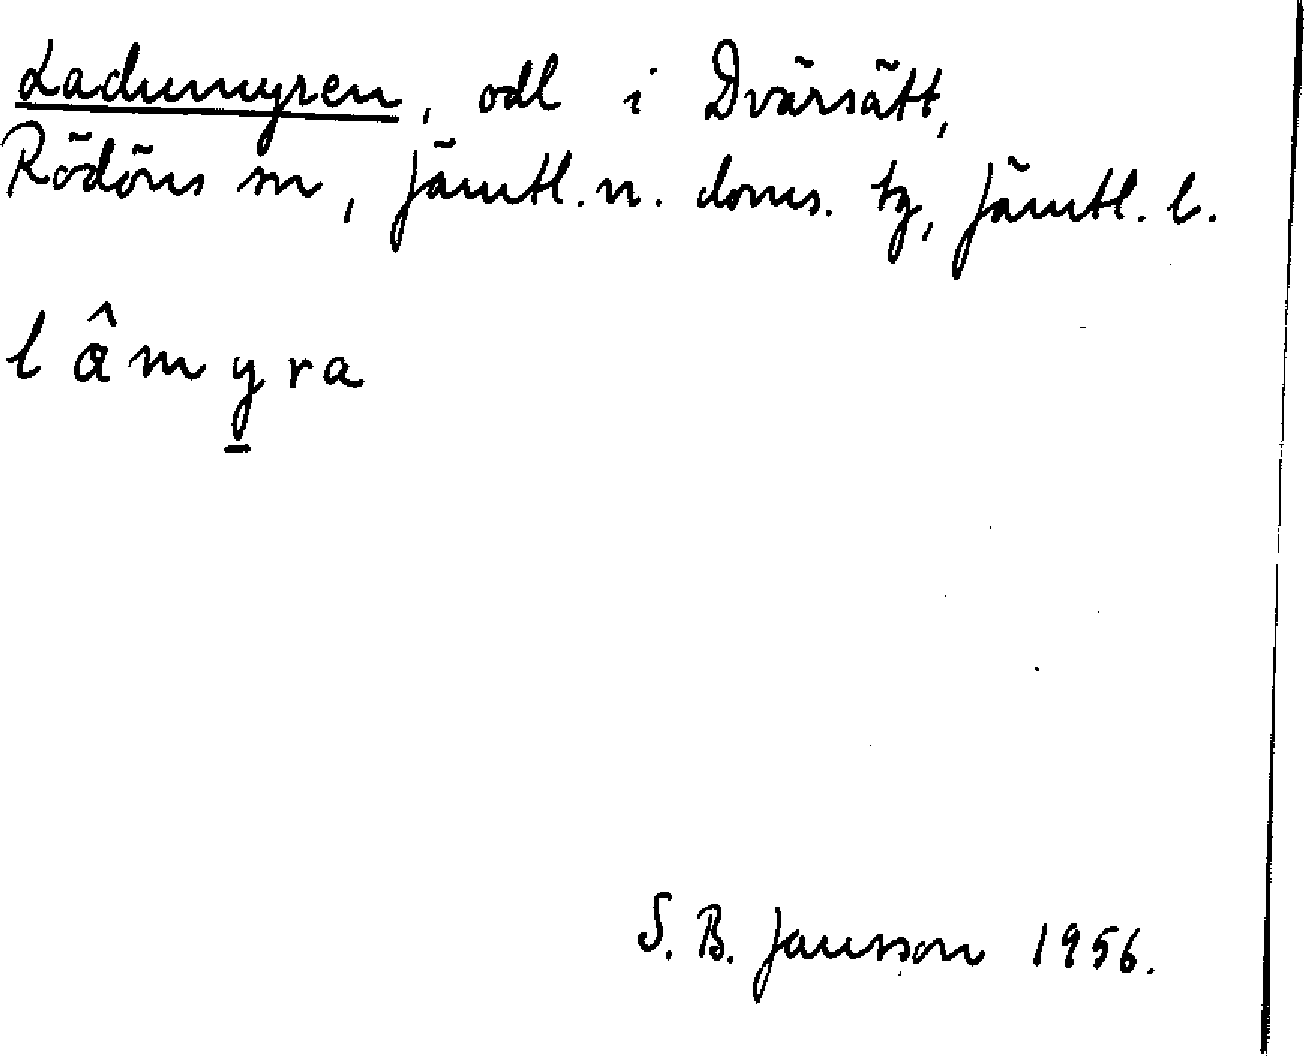 Ladumyren, odl i Dvärsätt,
Rödöns sn, Jämtl. n. doms. tg, Jämtl. l.
l â m y r a
S. B. Jansson 1956.